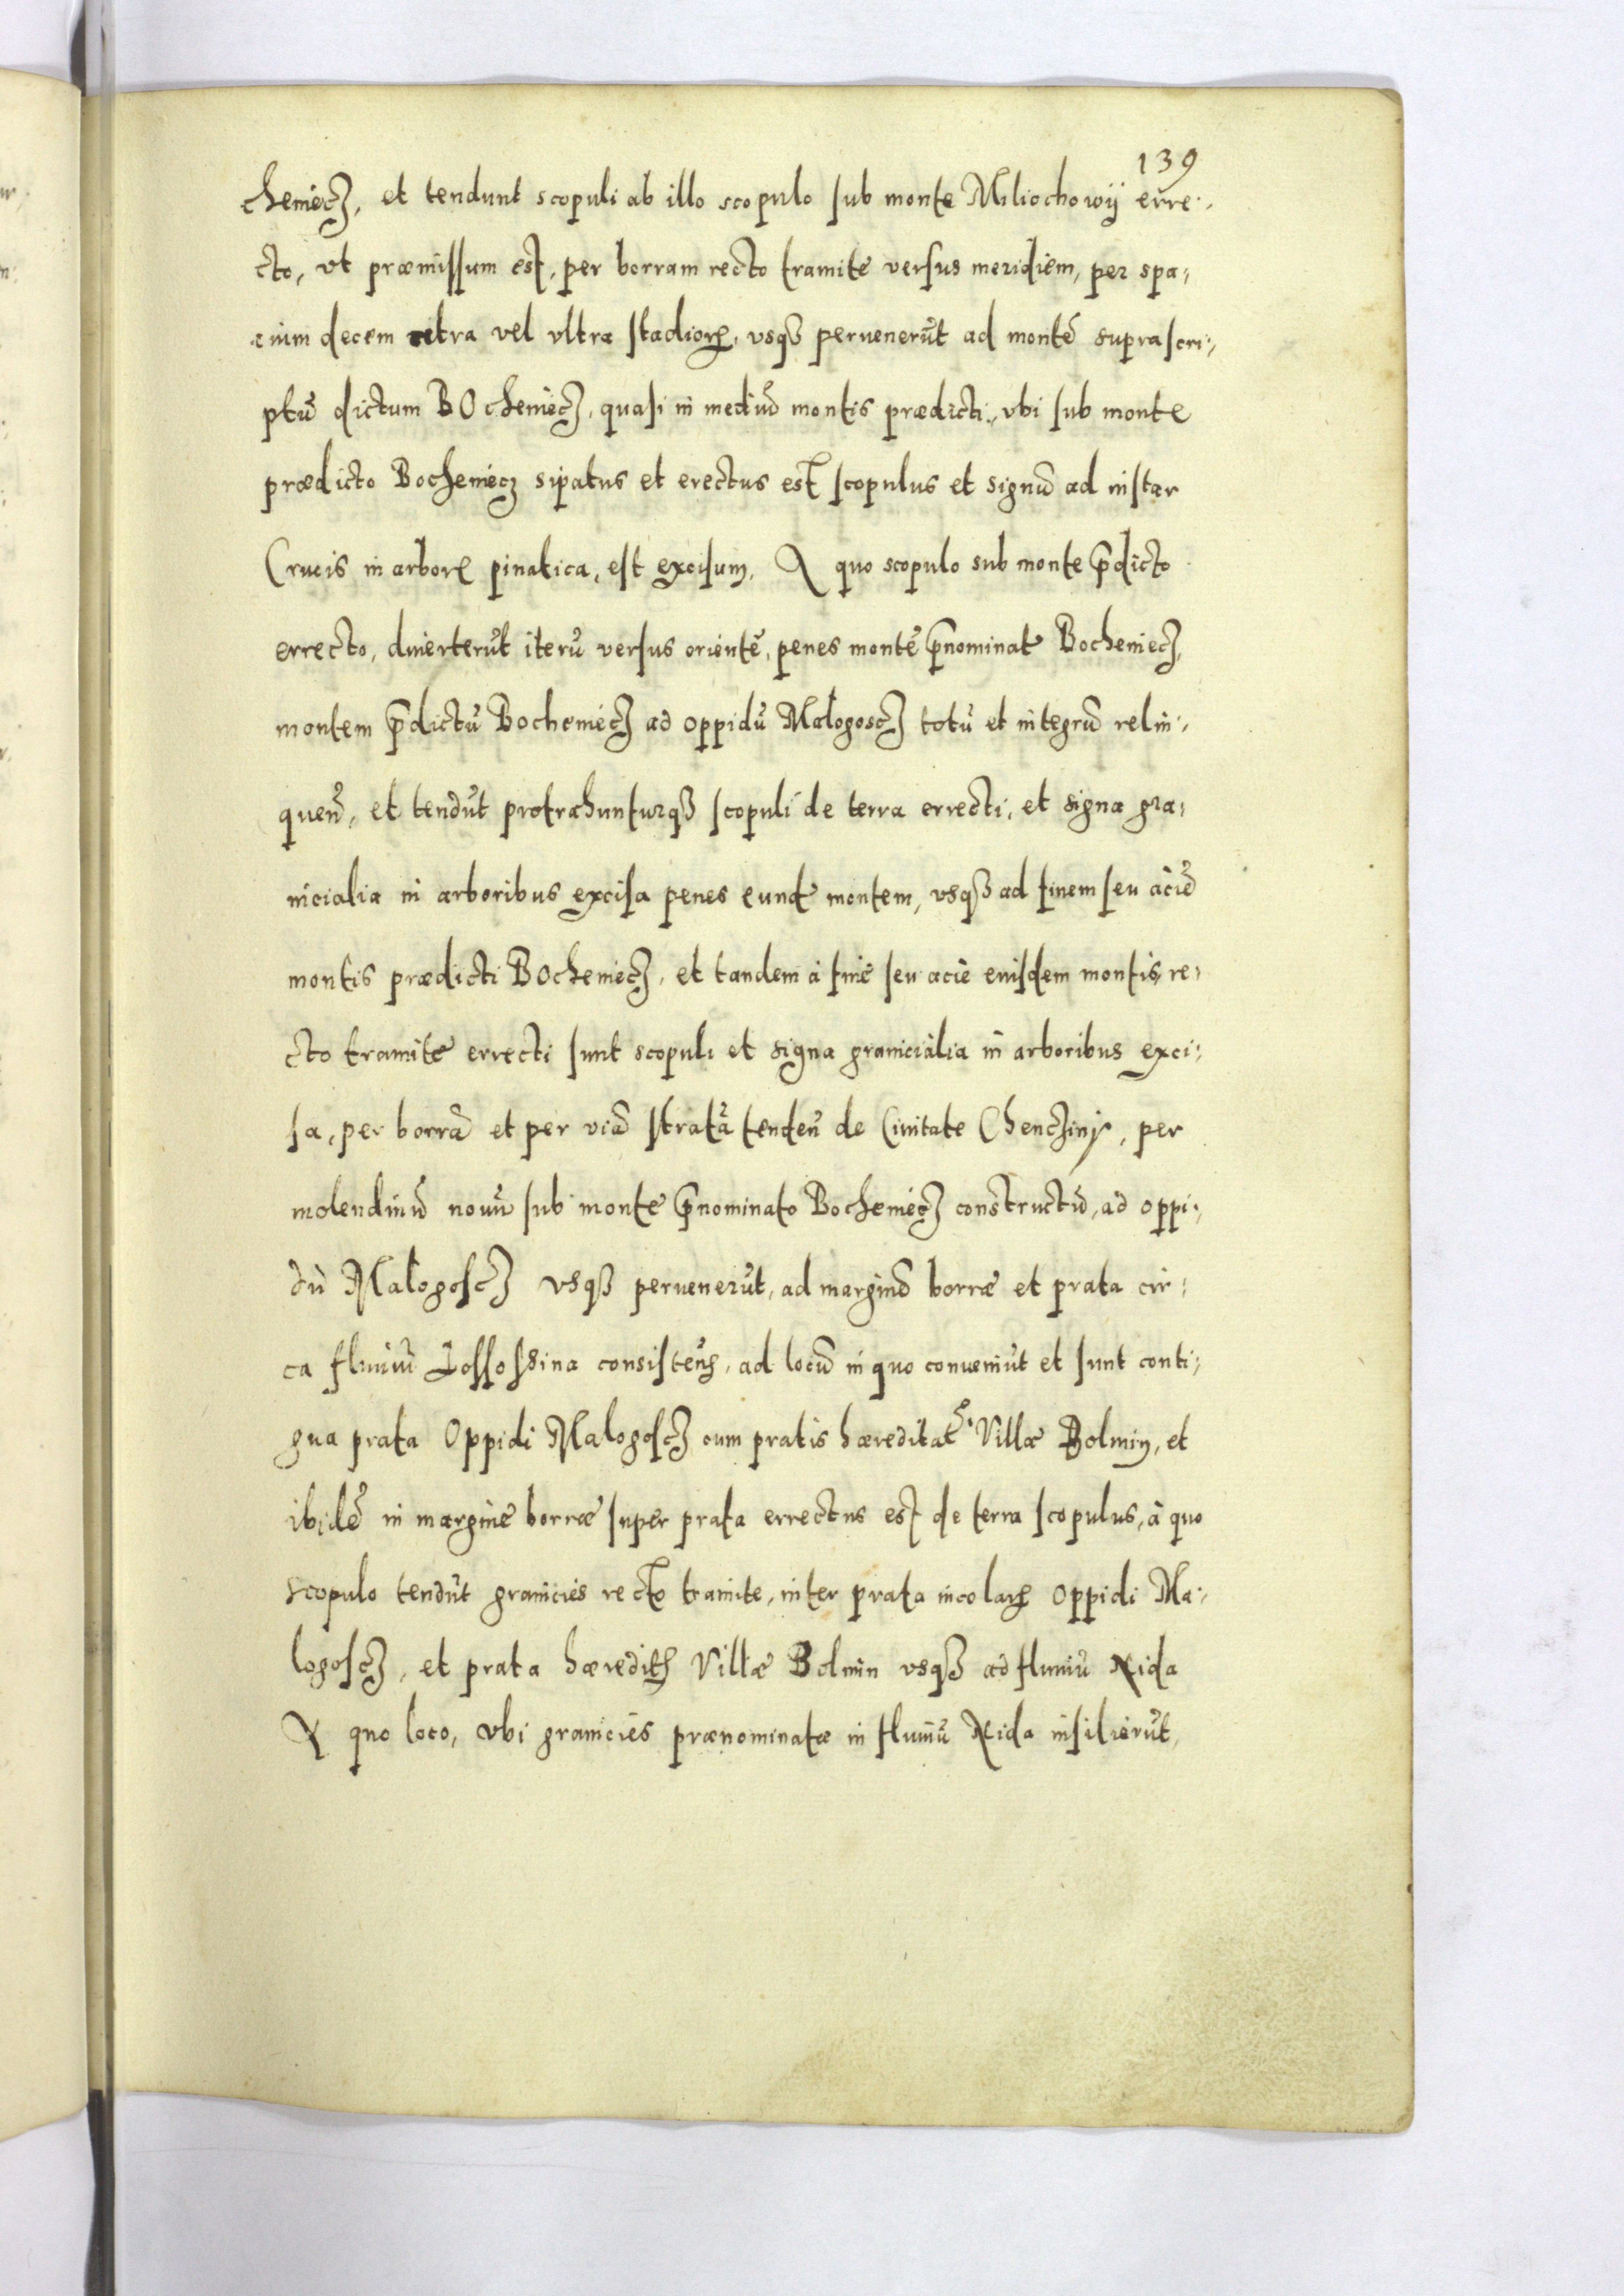 139
cheniecz, et tendunt scopuli ab illo scopulo sub monte Miliochowÿ erre-
cto, vt præmissum est, per borram recto tramite versus meridiem, per spa-
cium decem citra vel vltra stadioꝝ, vsqꝫ peruenerūt ad montē suprascri-
ptū dictum BOcheniecz, quasi in mediū montis prædicti, vbi sub monte
prædicto Bocheniecz sipatus et erectus est scopulus et signū ad instar
Crucis in arbore pinatica, est excisum. A quo scopulo sub monte p̄dicto
errecto, diuerterūt iterū versus orientē, penes montē p̄nominat Bocheniecz,
montem p̄dictū Bocheniecz ad oppidū Małogoscz totū et integrū relin-
quen̄, et tendūt protrahunturqꝫ scopuli de terra errecti, et signa gra-
nicialia in arboribus excisa penes eund montem, vsqꝫ ad finem seu aciē
montis prædicti BOcheniecz, et tandem à fine seu acie eiusdem montis, re-
cto tramite errecti sunt scopuli et signa granicialia in arboribus exci-
sa, per borrā et per viā stratā tenden̄ de Ciuitate Chencziny, per
molendinū nouū sub monte p̄nominato Bocheniecz constructū, ad oppi-
dū Małogoscz vsqꝫ peruenerūt, ad marginē borræ et prata cir-
ca fluuiū Lossossina consisten̄, ad locū in quo conueniūt et sunt conti-
gua prata Oppidi Malogoscz cum pratis hæreditat Villæ Bolmin, et
ibidē in margine borræ super prata errectus est de terra scopulus, à quo
scopulo tendūt granicies recto tramite, inter prata incolaꝝ Oppidi Ma-
logoscz, et prata hæredit Villæ Bolmin vsqꝫ ad fluuiū Nida
A quo loco, vbi granicies prænominatæ in fluuiū Nida insilierūt,